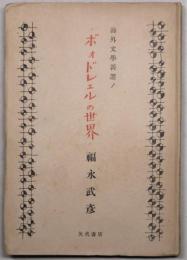 海外文學新選ノ
ボオドレエルの世界
福永武彦
矢代書店